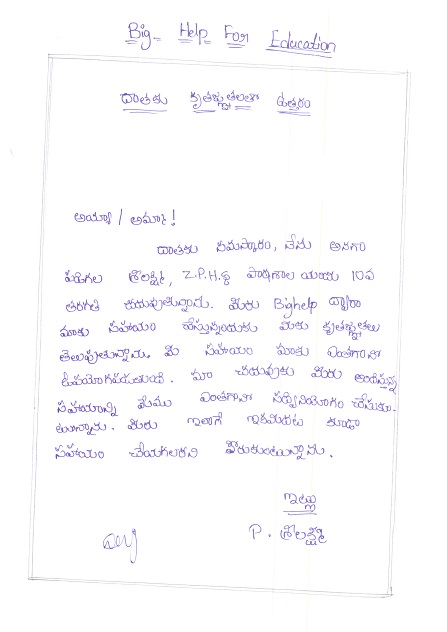 Big Help For Education
దాతకు కృతజ్ఞతలతో ఉత్తరం
అయ్యా / అమ్మా !
దాతకు నమస్కారం, నేను అనగా
పడిగల శ్రీలక్ష్మి, Z.P.H.S పాఠశాల యందు 10వ
తరగతి చదువుతున్నాను. మీరు Bighelp ద్వారా
మాకు సహాయం చేస్తున్నందుకు మీకు కృతజ్ఞతలు
తెలుపుతున్నాను. మీ సహాయం మాకు ఎంతగానో
ఉపయోగపడుతుంది. మా చదువుకు మీరు అందిస్తున్న
సహాయాన్ని మేము ఎంతగానో సద్వినియోగం చేసుకుం-
టున్నాను. మీరు ఇలాగే ఇకమీదట కూడా
సహాయం చేయగలరని కోరుకుంటున్నాను.
ఇట్లు
P. శ్రీలక్ష్మి